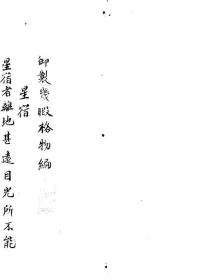 御製幾暇格物編
星宿
星宿者離地甚遠目光所不能